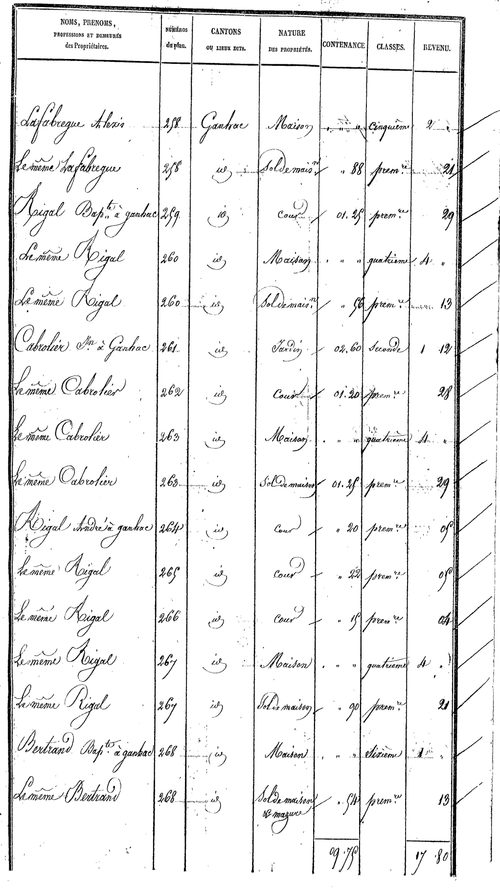 NOMS, PRENOMS, PROFESSIONS ET DEMEURES des Propriétaires. NUMÉROS du plan. CANTONS OU LIEUX DITS. NATURE DES PROPRIÉTÉS. CONTENANCE CLASSES. REVENU.
Lafabregue Alexis 258 Ganhac Maison " " " cinquième 2 "
Le même Lafabregue 258 id Sol de mais.ⁿ " 88 prem.re 21
Rigal Bap.te à ganhac 259 id cour 01.25 prem.re 29
Le même Rigal 260 id Maison " " " quatrième 4 "
Le même Rigal 260 id Sol de mais.ⁿ " 56 prem.re 13
Cabrolier Jn à Ganhac 261 id Jardin 02.60 seconde 1 12
Le même Cabrolier 262 id Cour 01.20 prem.re 28
Le même Cabrolier 263 id Maison " " " quatrième 4 "
Le même Cabrolier 263 id Sol de maison 01.25 prem.re 29
Rigal André à ganhac 264 id cour " 20 prem.re 05
Le même Rigal 265 id cour " 22 prem.re 05
Le même Rigal 266 id cour " 15 prem.re 04
Le même Rigal 267 id Maison " " " quatrième 4 "
Le même Rigal 267 id Sol de maison " 90 prem.re 21
Bertrand Bap.te à ganhac 268 id Maison " " " sixième 1 "
Le même Bertrand 268 id Sol de maison " 54 prem.re 13
& mazure
09.75 17 80